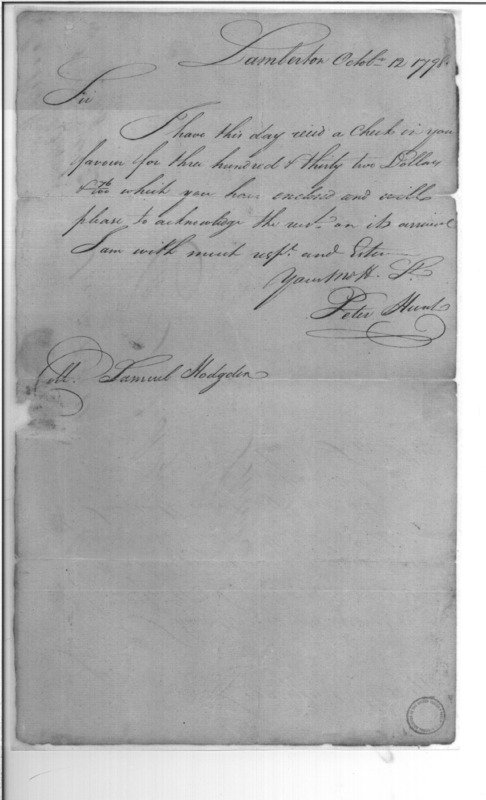 Lamberton Octobr. 12 1798.
Sir
I have this day recd a Check in your
favour for three hundred & thirty two Dollars
& 76/100 which you have enclosed and will
please to acknowlege the rect. on its arrival
I am with much respt. and Esteem
Your Mo H. St.
Peter Hunt
M. Samuel Hodgdon